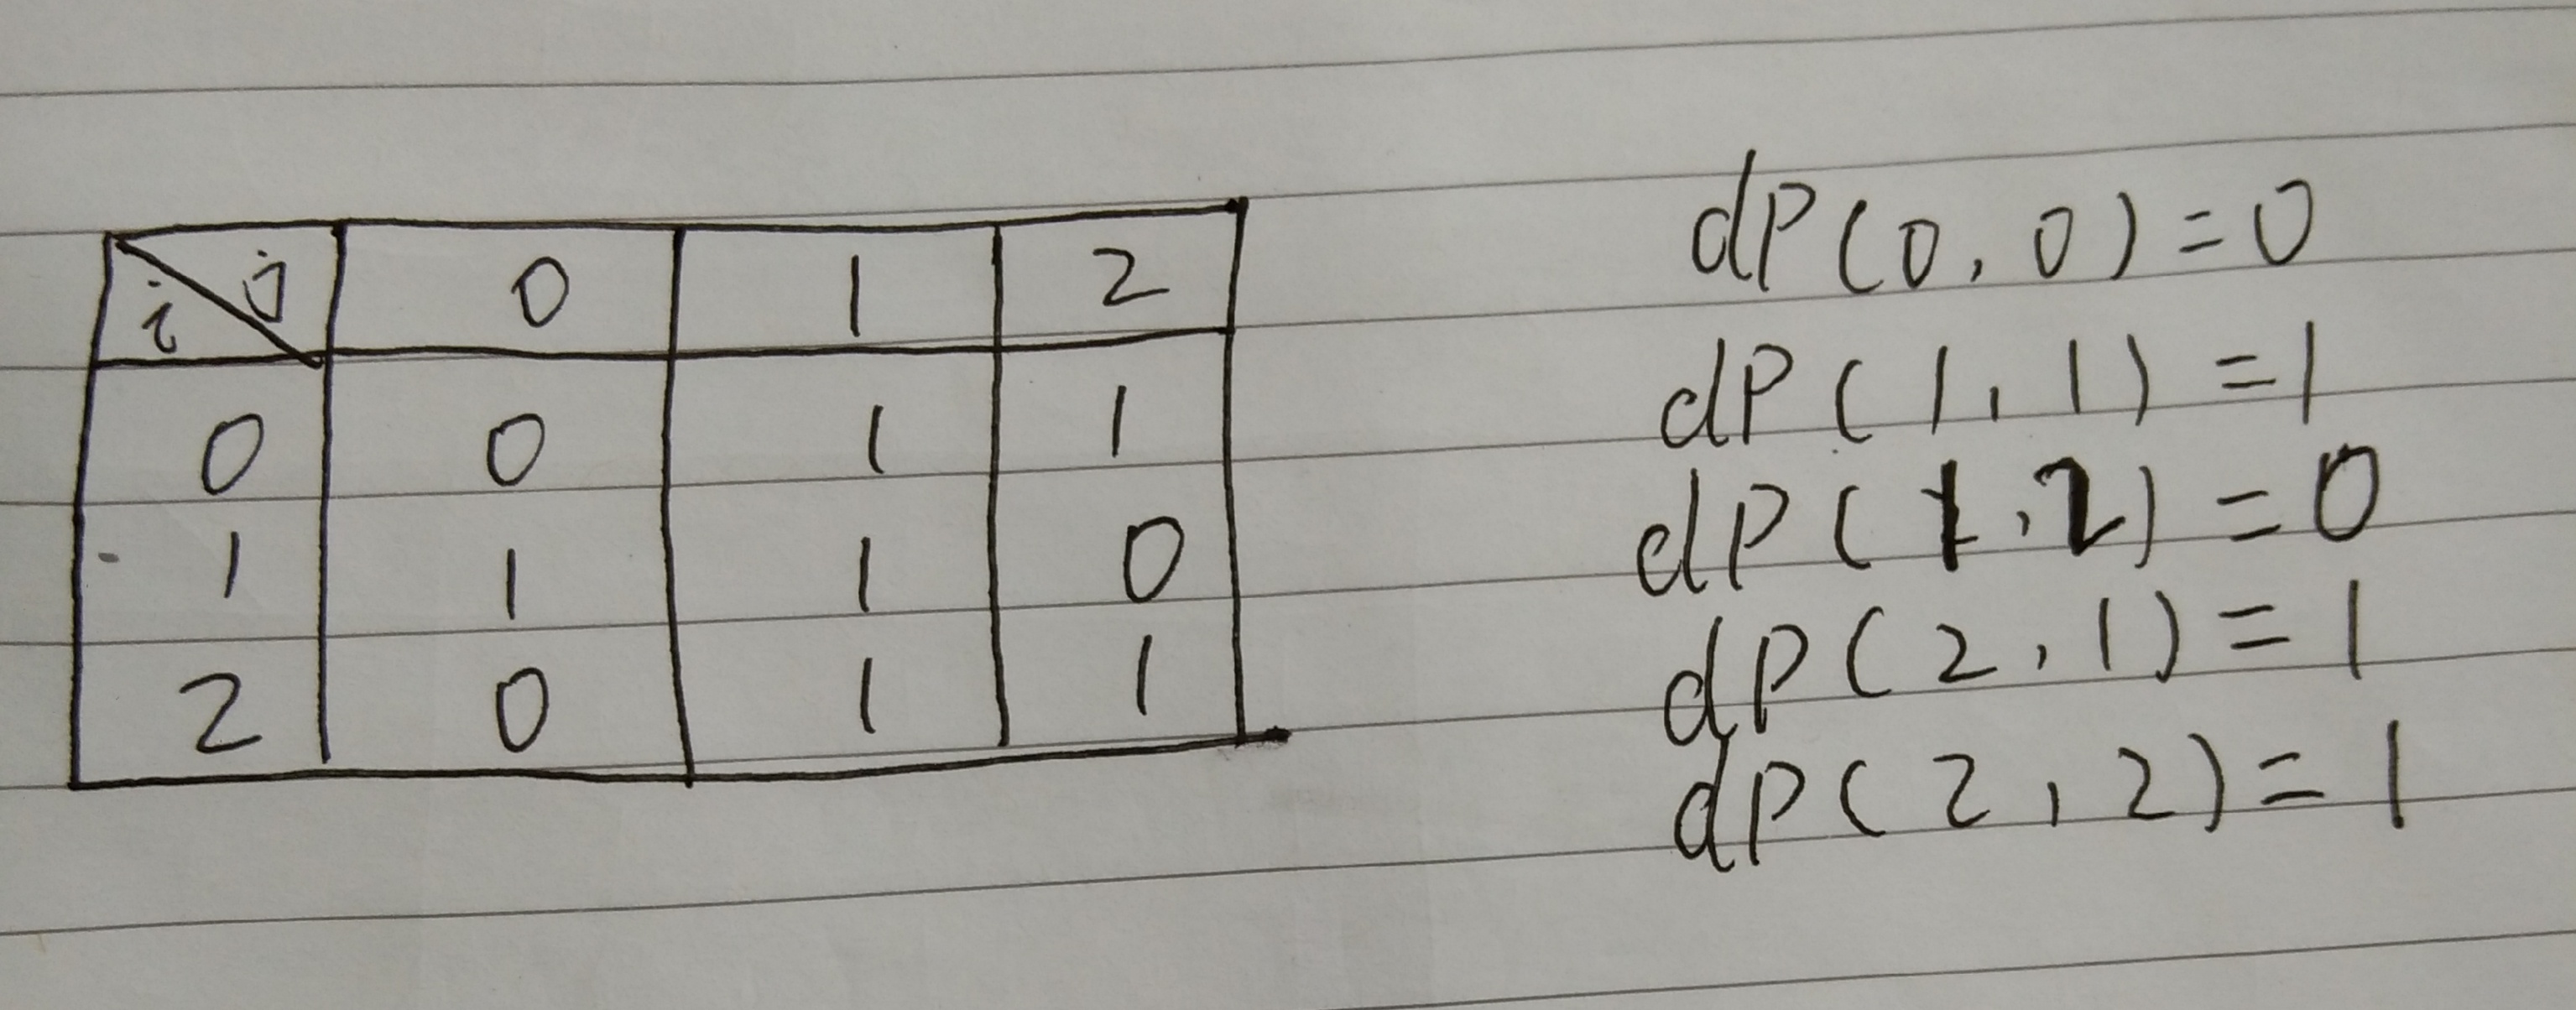 i j 0 1 2
0 0 1 1
1 1 1 0
2 0 1 1
dp(0,0)=0
dp(1,1)=1
dp(1,2)=0
dp(2,1)=1
dp(2,2)=1